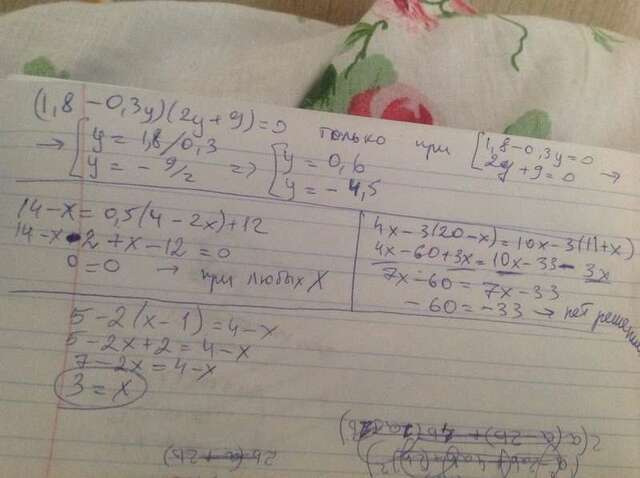 (1,8 – 0,3y)(2y + 9) = 0 только при [1,8 – 0,3y = 0
2y + 9 = 0 →
→ [y = 1,8/0,3
y = – 9/2 => [y = 0,6
y = – 4,5
14 – x = 0,5(4 – 2x) + 12
14 – x – 2 + x – 12 = 0
0 = 0 → при любых x
4x – 3(20 – x) = 10x – 3(11 + x)
4x – 60 + 3x = 10x – 33 – 3x
7x – 60 = 7x – 33
– 60 = – 33 → нет решения
5 – 2(x – 1) = 4 – x
5 – 2x + 2 = 4 – x
7 – 2x = 4 – x
3 = x